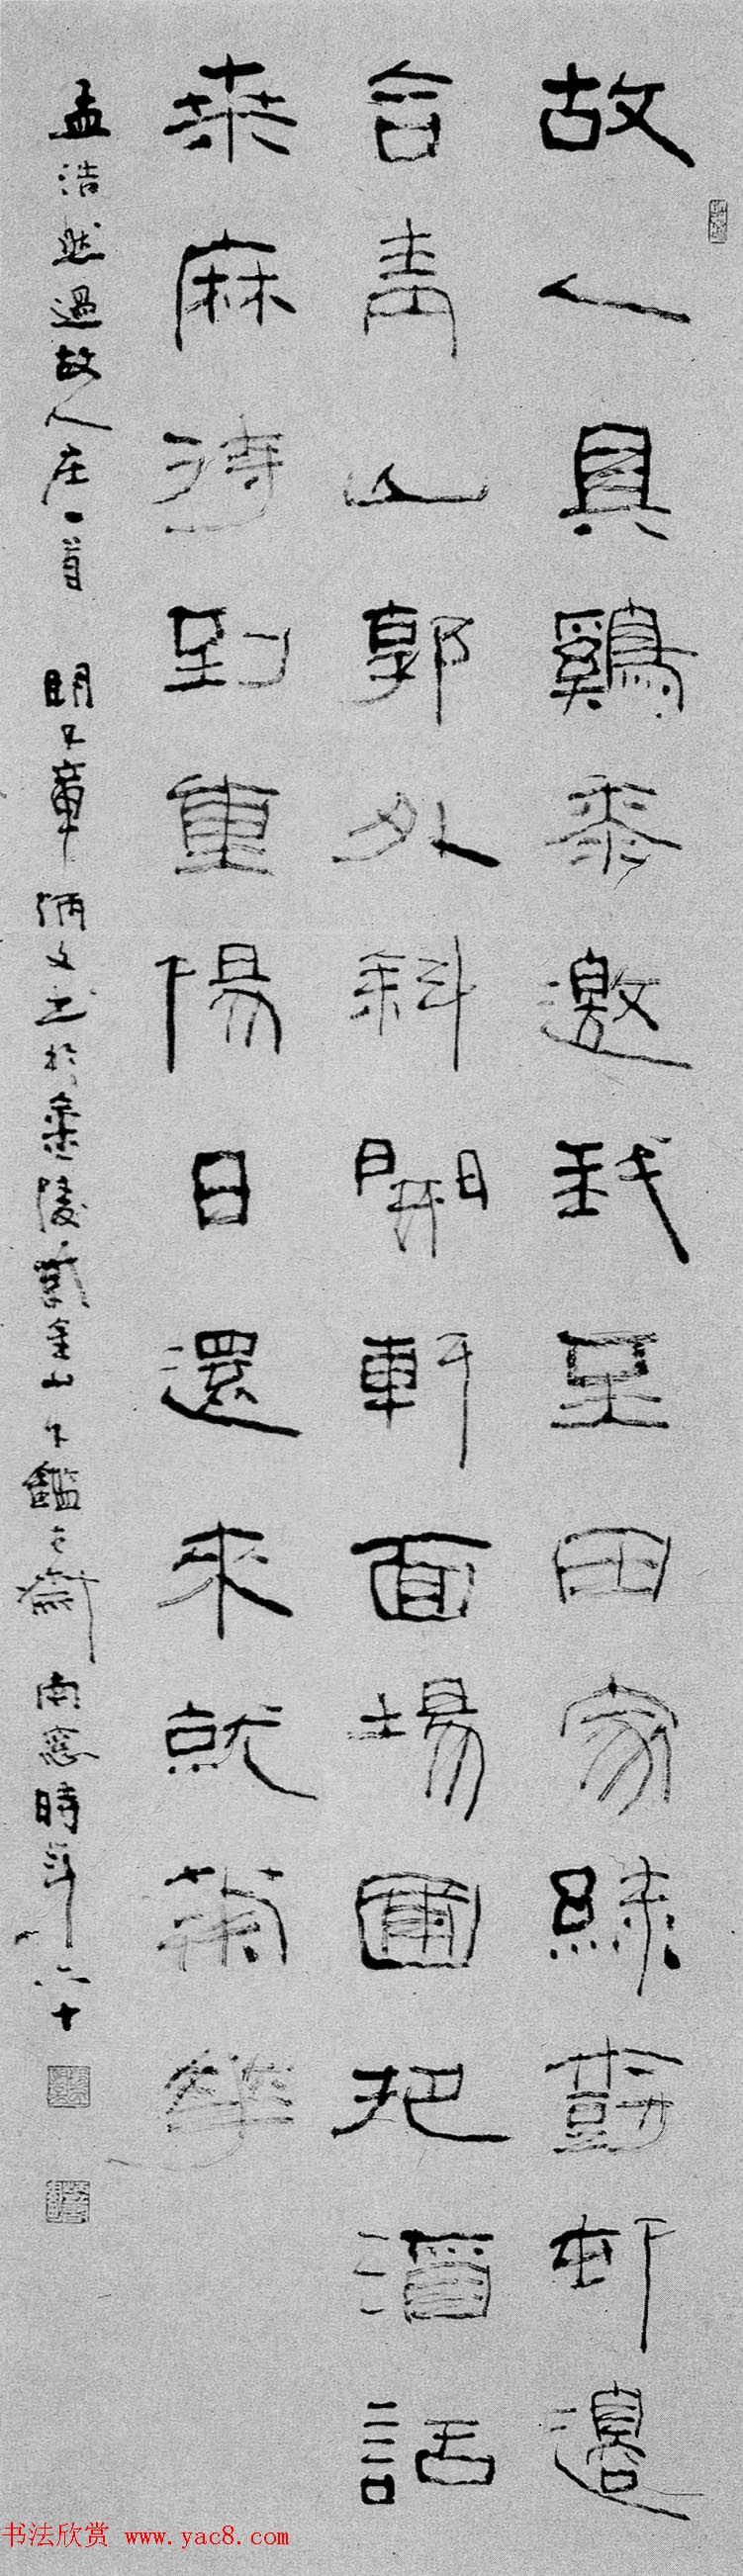 故人具鷄黍邀我至田家綠樹邨邊
合青山郭外斜開軒面場圃把酒話
桒麻待到重陽日還來就菊華
孟浩然過故人庄一首 明子章炳文書於 南窓時年六十
书法欣赏 www.yac8.com